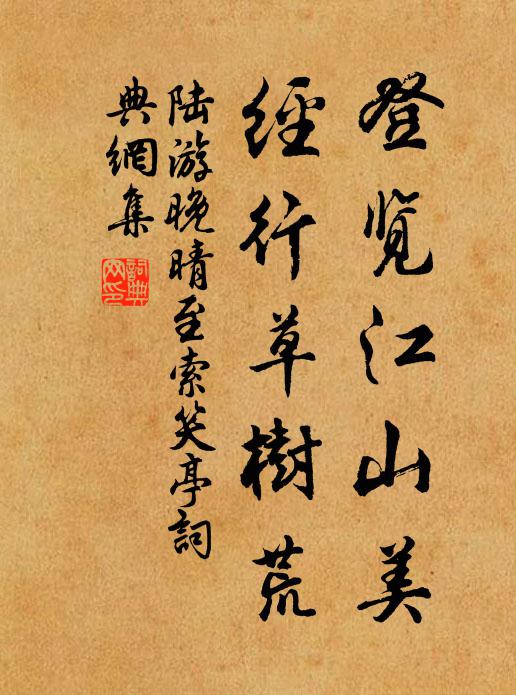 登览江山美
經行草樹荒
陆游晚晴至索笑亭詞
典網集
詞典
网印